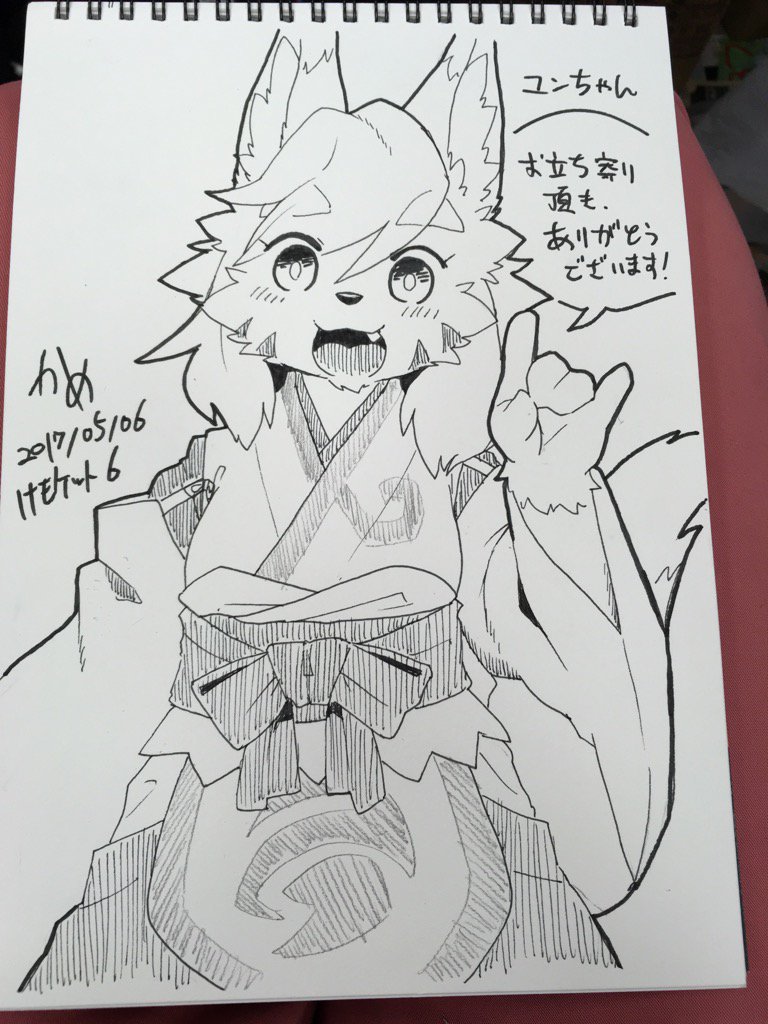 ユンちゃん
お立ち寄り
頂き、
ありがとう
ございます!
かめ
2017/05/06
けもケット6